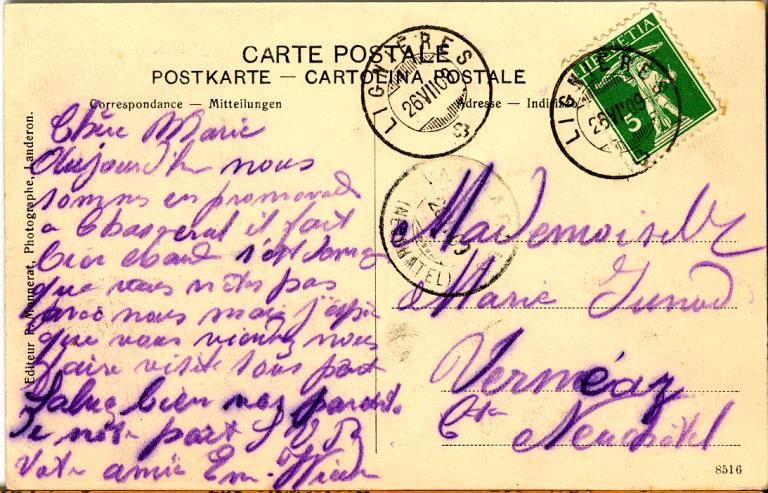 CARTE POSTALE
POSTKARTE — CARTOLINA POSTALE
Correspondance — Mitteilungen
Adresse —
LIGNIÈRES
26 VII 09
LIGNIÈRES
26 VII 09
HELVETIA
5
(NEUCHATEL)
Editeur R. Monnerat, Photographe, Landeron.
Chère Marie
Aujourd'hui nous
sommes en promenade
a Chasseral il fait
bien chaud
que vous n'êtes pas
avec nous mais j'espère
que vous viendrez nous
faire visite
Saluez bien vos parents
de notre part S V P
Votre amie Em.
Mademoiselle
Marie Junod
Vernéaz
Ct. Neuchâtel
8516